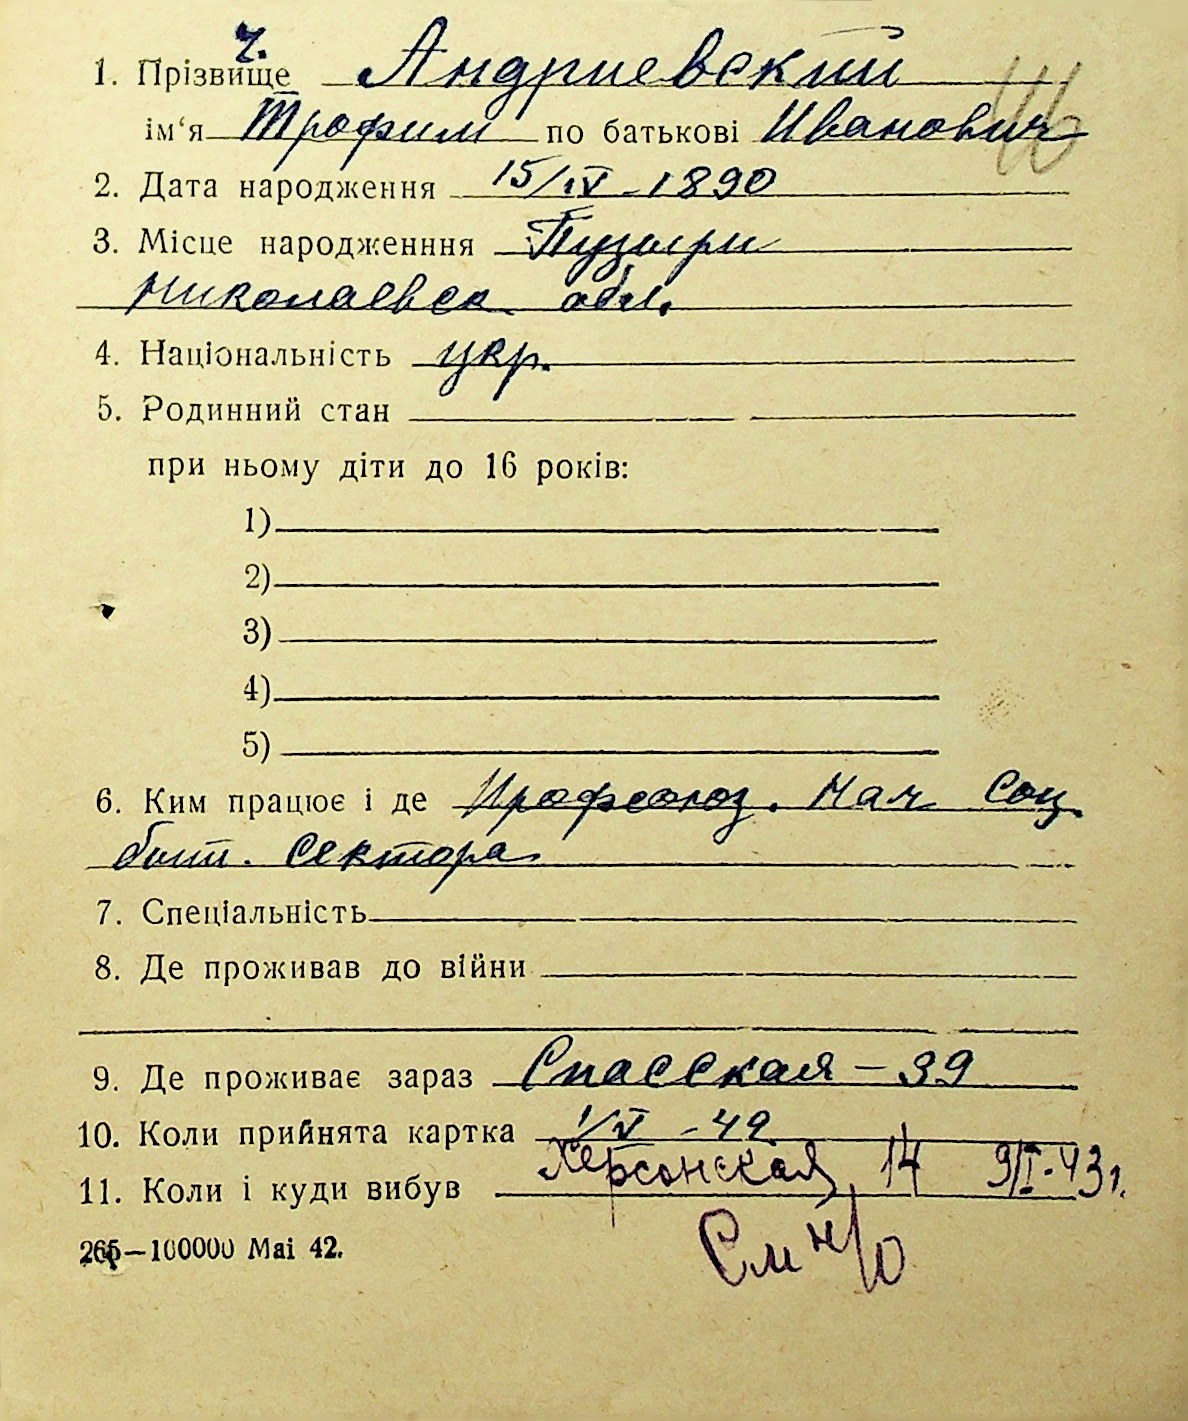 ч.
1. Прізвище Андриевский
ім‘я Трофим по батькові Иванович
2. Дата народження 15/IV - 1890
3. Місце народженння Пузыри
Николаевск обл.
4. Національність укр.
5. Родинний стан
при ньому діти до 16 років:
1)
2)
3)
4)
5)
6. Ким працює і де Профсоюз. Нач Соц.
быт. сектора
7. Спеціальність
8. Де проживав до війни
9. Де проживає зараз Спасская - 39
10. Коли прийнята картка 1/V - 42
Херсонская, 14 9/I-43г.
11. Коли і куди вибув
См н/о
265—100000 Mai 42.